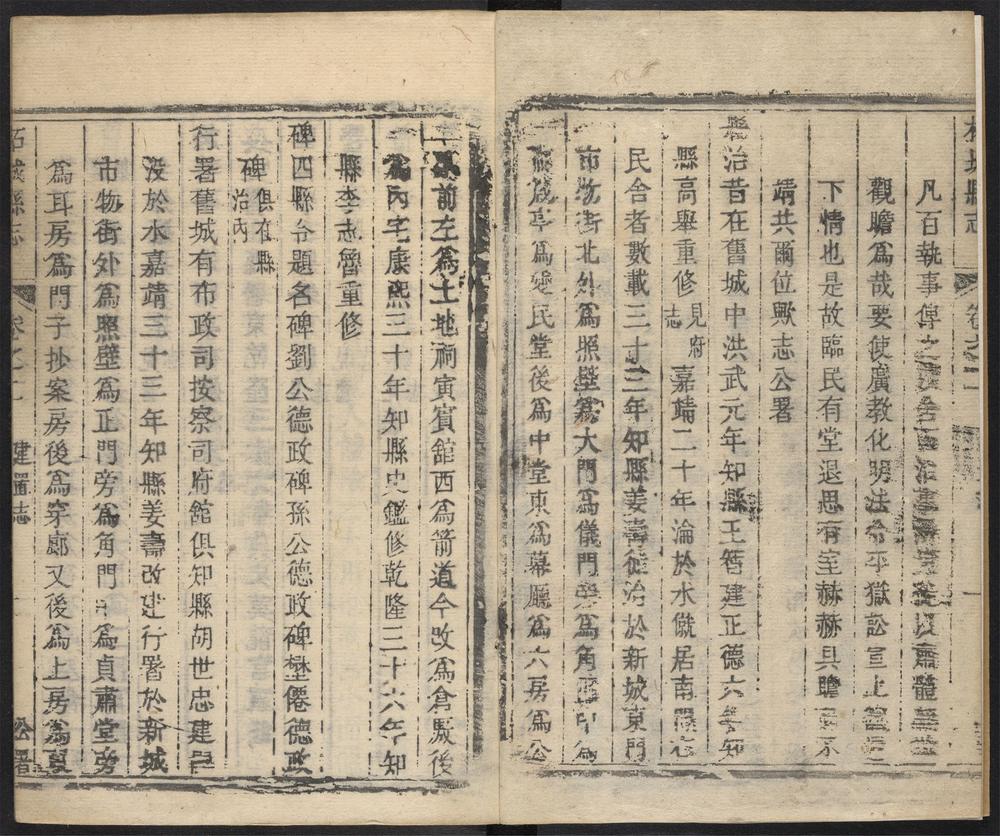 柘城縣志 卷之二
凡百執事傳
觀瞻爲哉要使廣教化明法令平獄訟宣上
下情也是故臨民有堂退思有室赫赫具瞻
靖共爾位歟志公署
縣治昔在舊城中洪武元年知縣王智建正德六年知
縣高舉重修見府志嘉靖二十年淪於水僦居南關
民舍者數載三十三年知縣姜壽徙治於新城東門
市物街北外爲照壁爲大門爲儀門旁爲角門中爲
箴亭爲堂後爲中堂東爲幕廳爲六房爲公
前左爲土地祠寅賓舘西爲箭道今改爲倉厫後
爲內宅康熙三十年知縣史鑑修乾隆三十六年知
縣李志魯重修
碑四縣令題名碑劉公德政碑孫公德政碑僊德政
碑俱在縣治內
行署舊城有布政司按察司府舘俱知縣胡世忠建
没於水嘉靖三十三年知縣姜壽改建行署於新城
市物街外爲照壁爲正門旁爲角門中爲貞肅堂旁
爲耳房爲門子抄案房後爲穿廊又後爲上房爲
柘城縣志 卷之二 建置志 公署